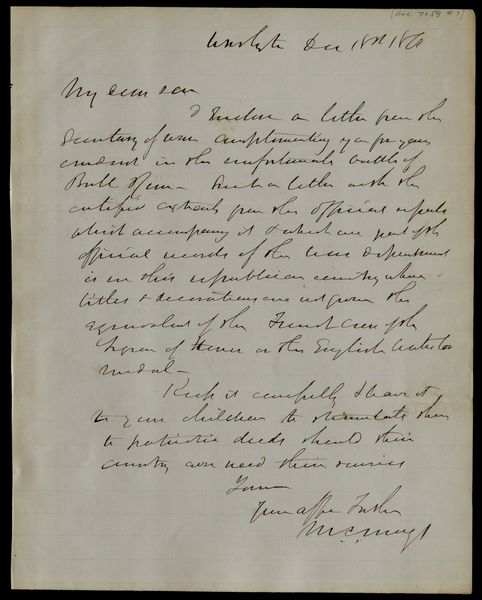 Dec 18th 186
My dear son
I Enclose a letter from the
Secretary of war complimenting you for your
conduct in the unfortunate battle of
Bull Run - Such a letter with the
certified extracts from the official reports
which accompany it & which are part of the
official records of the war department
is in this republican country where
titles & decorations are not given the
equivalent of the French Cross of the
Legion of Honor or the English Waterloo
medal -
Keep it carefully & leave it
to your children to stimulate them
to patriotic deeds should their
country ever need their services
Your affte Father
M. C. Meigs